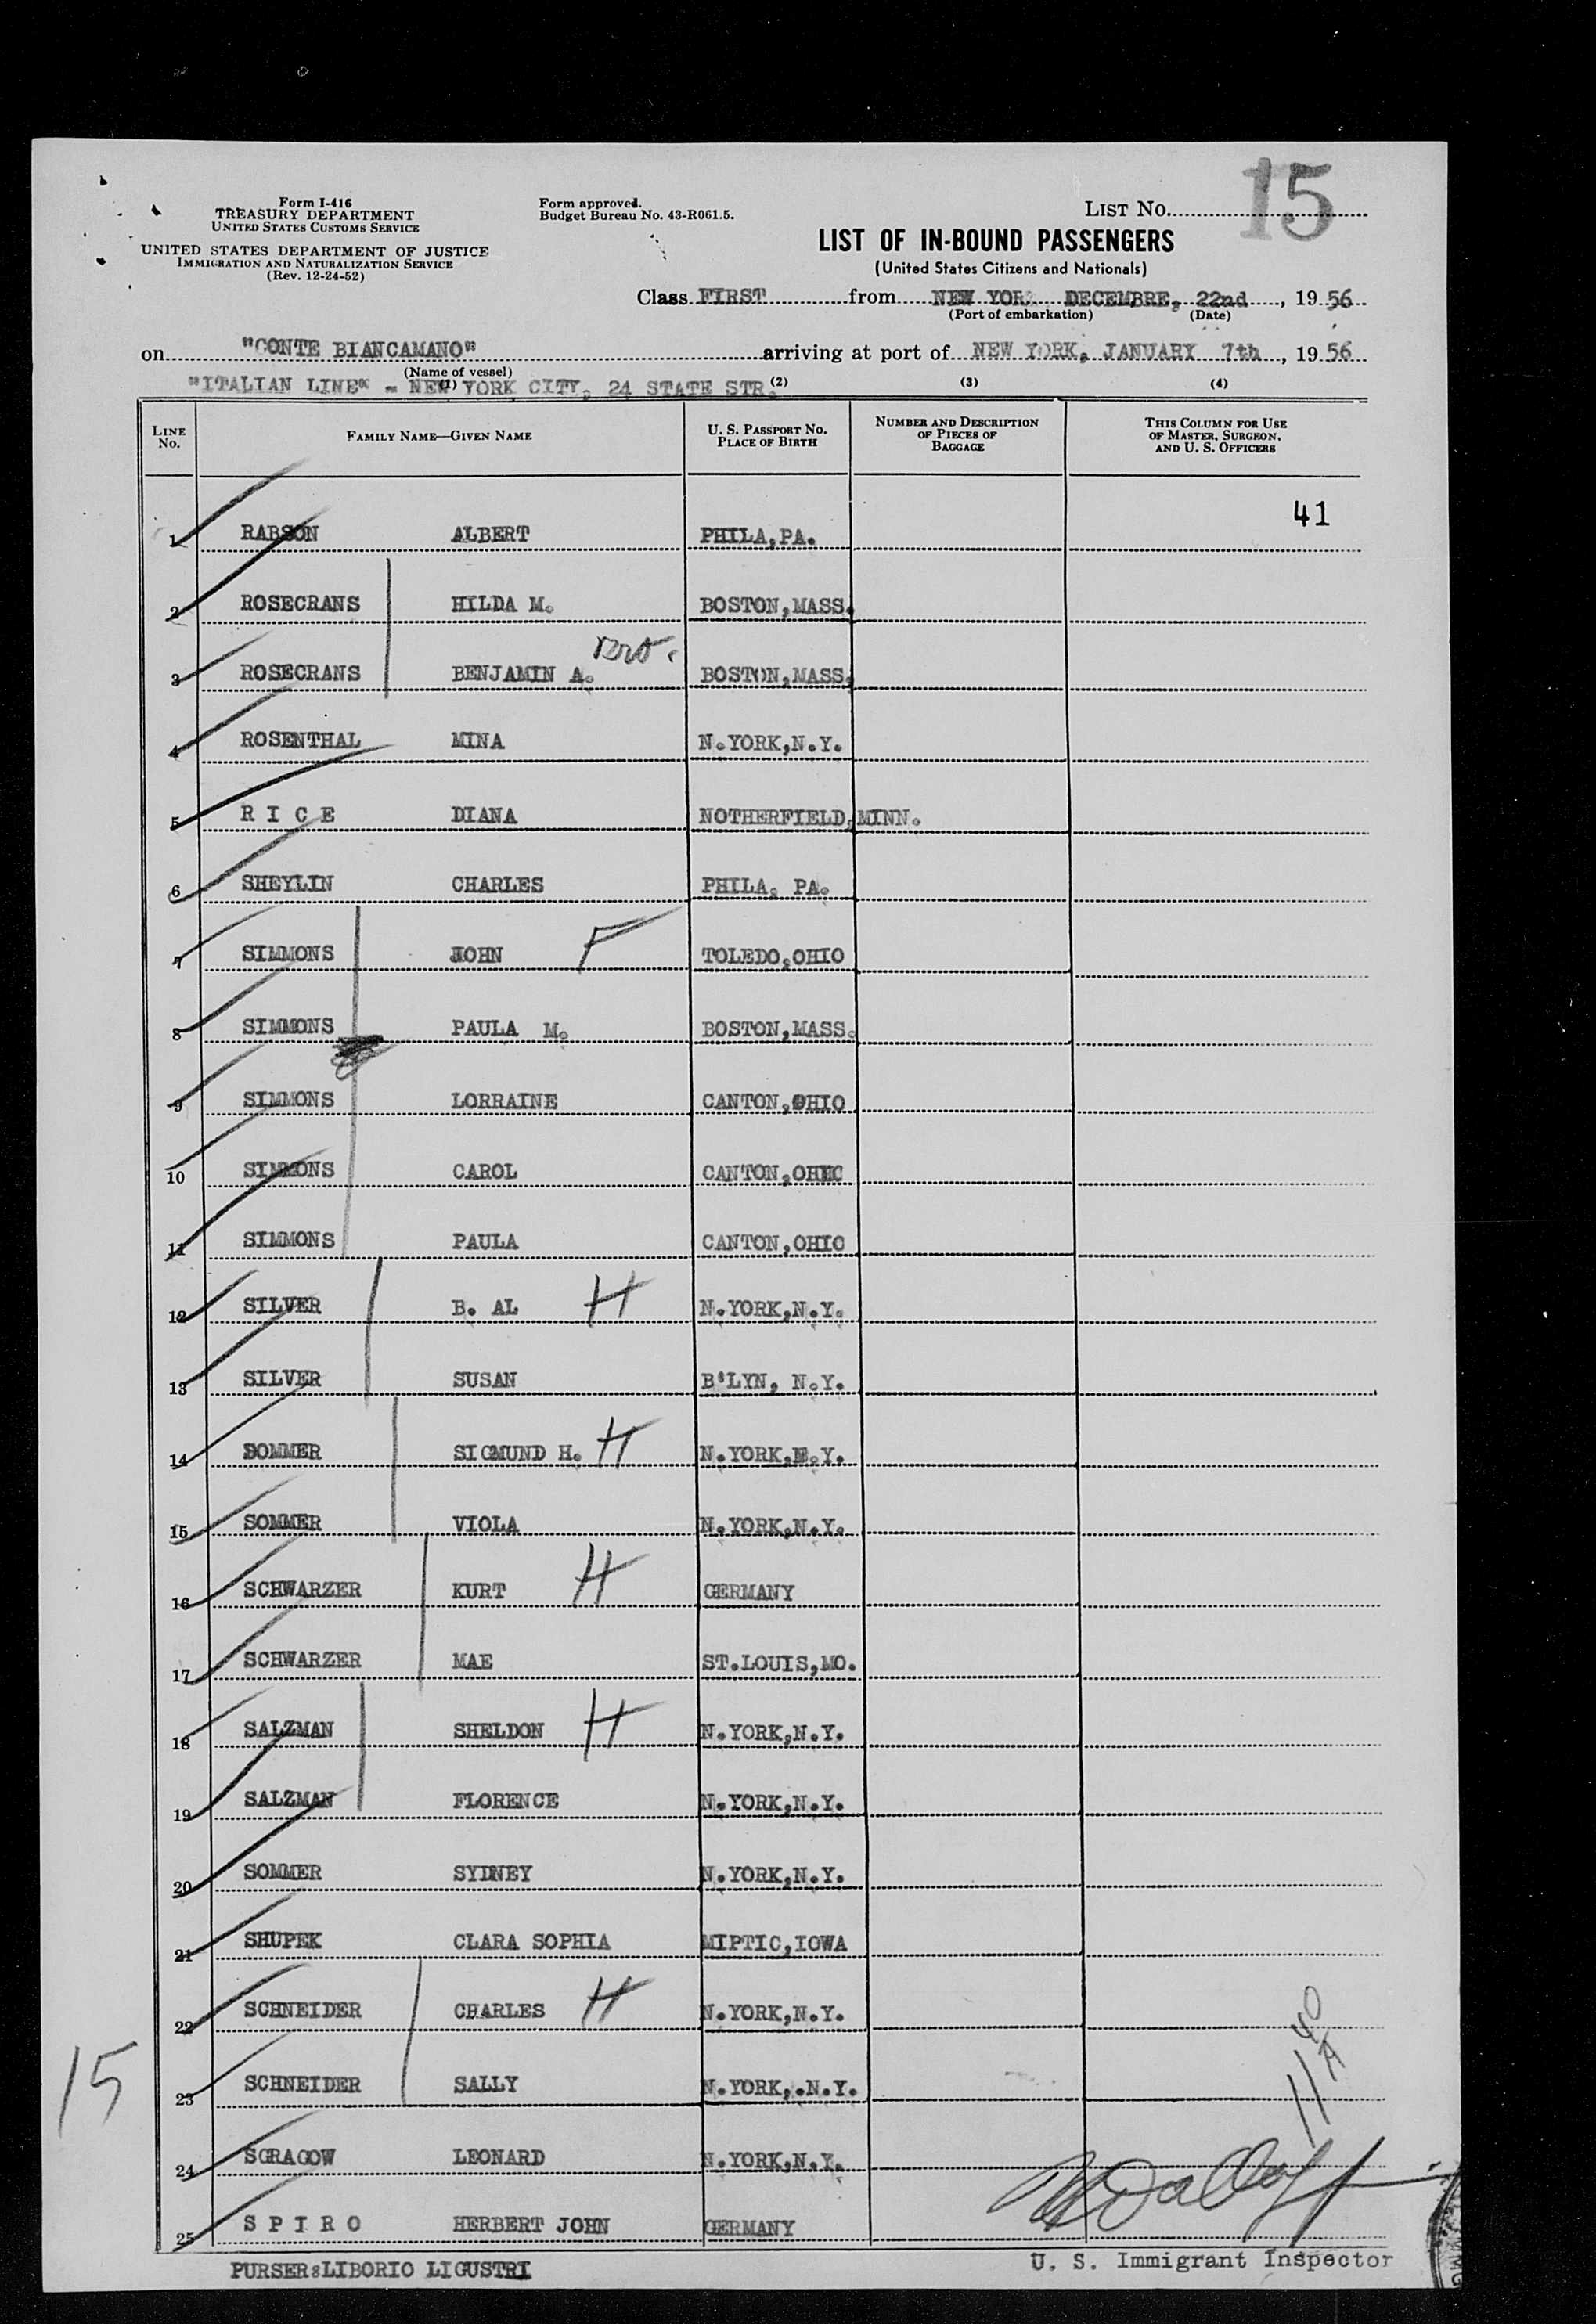 15
Form I-416
TREASURY DEPARTMENT
UNITED STATES CUSTOMS SERVICE
UNITED STATES DEPARTMENT OF JUSTICE
IMMIGRATION AND NATURALIZATION SERVICE
(Rev. 12-24-52)
Form approved.
Budget Bureau No. 43-R061.5.
LIST NO.
LIST OF IN-BOUND PASSENGERS
(United States Citizens and Nationals)
Class FIRST from NEW YOR DECEMBRE, 22nd, 1956
(Port of embarkation) (Date)
on "CONTE BIANCAMANO" arriving at port of NEW YORK, JANUARY 7th, 1956
(Name of vessel)
"ITALIAN LINE" - NEW YORK CITY, 24 STATE STR.
(1) (2) (3) (4)
LINE NO. FAMILY NAME—GIVEN NAME U. S. PASSPORT NO. PLACE OF BIRTH NUMBER AND DESCRIPTION OF PIECES OF BAGGAGE THIS COLUMN FOR USE OF MASTER, SURGEON, AND U. S. OFFICERS
41
1 RABSON ALBERT PHILA,PA.
2 ROSECRANS HILDA M. BOSTON,MASS.
3 ROSECRANS BENJAMIN A. Bro. BOSTON,MASS.
4 ROSENTHAL MINA N.YORK,N.Y.
5 R I C E DIANA NOTHERFIELD,MINN.
6 SHEYLIN CHARLES PHILA, PA.
7 SIMMONS JOHN F TOLEDO,OHIO
8 SIMMONS PAULA M. BOSTON,MASS.
9 SIMMONS LORRAINE CANTON,OHIO
10 SIMMONS CAROL CANTON,OHIO
11 SIMMONS PAULA CANTON,OHIO
12 SILVER B. AL H N.YORK,N.Y.
13 SILVER SUSAN B'LYN, N.Y.
14 SOMMER SIGMUND H. H N.YORK,N.Y.
15 SOMMER VIOLA N.YORK,N.Y.
16 SCHWARZER KURT H GERMANY
17 SCHWARZER MAE ST.LOUIS,MO.
18 SALZMAN SHELDON H N.YORK,N.Y.
19 SALZMAN FLORENCE N.YORK,N.Y.
20 SOMMER SYDNEY N.YORK,N.Y.
21 SHUPEK CLARA SOPHIA MIPTIC,IOWA
22 SCHNEIDER CHARLES H N.YORK,N.Y.
23 SCHNEIDER SALLY N.YORK,.N.Y.
15
24 SGRAGOW LEONARD N.YORK,N.Y.
25 S P I R O HERBERT JOHN GERMANY
PURSER:LIBORIO LIGUSTRI
U. S. Immigrant Inspector